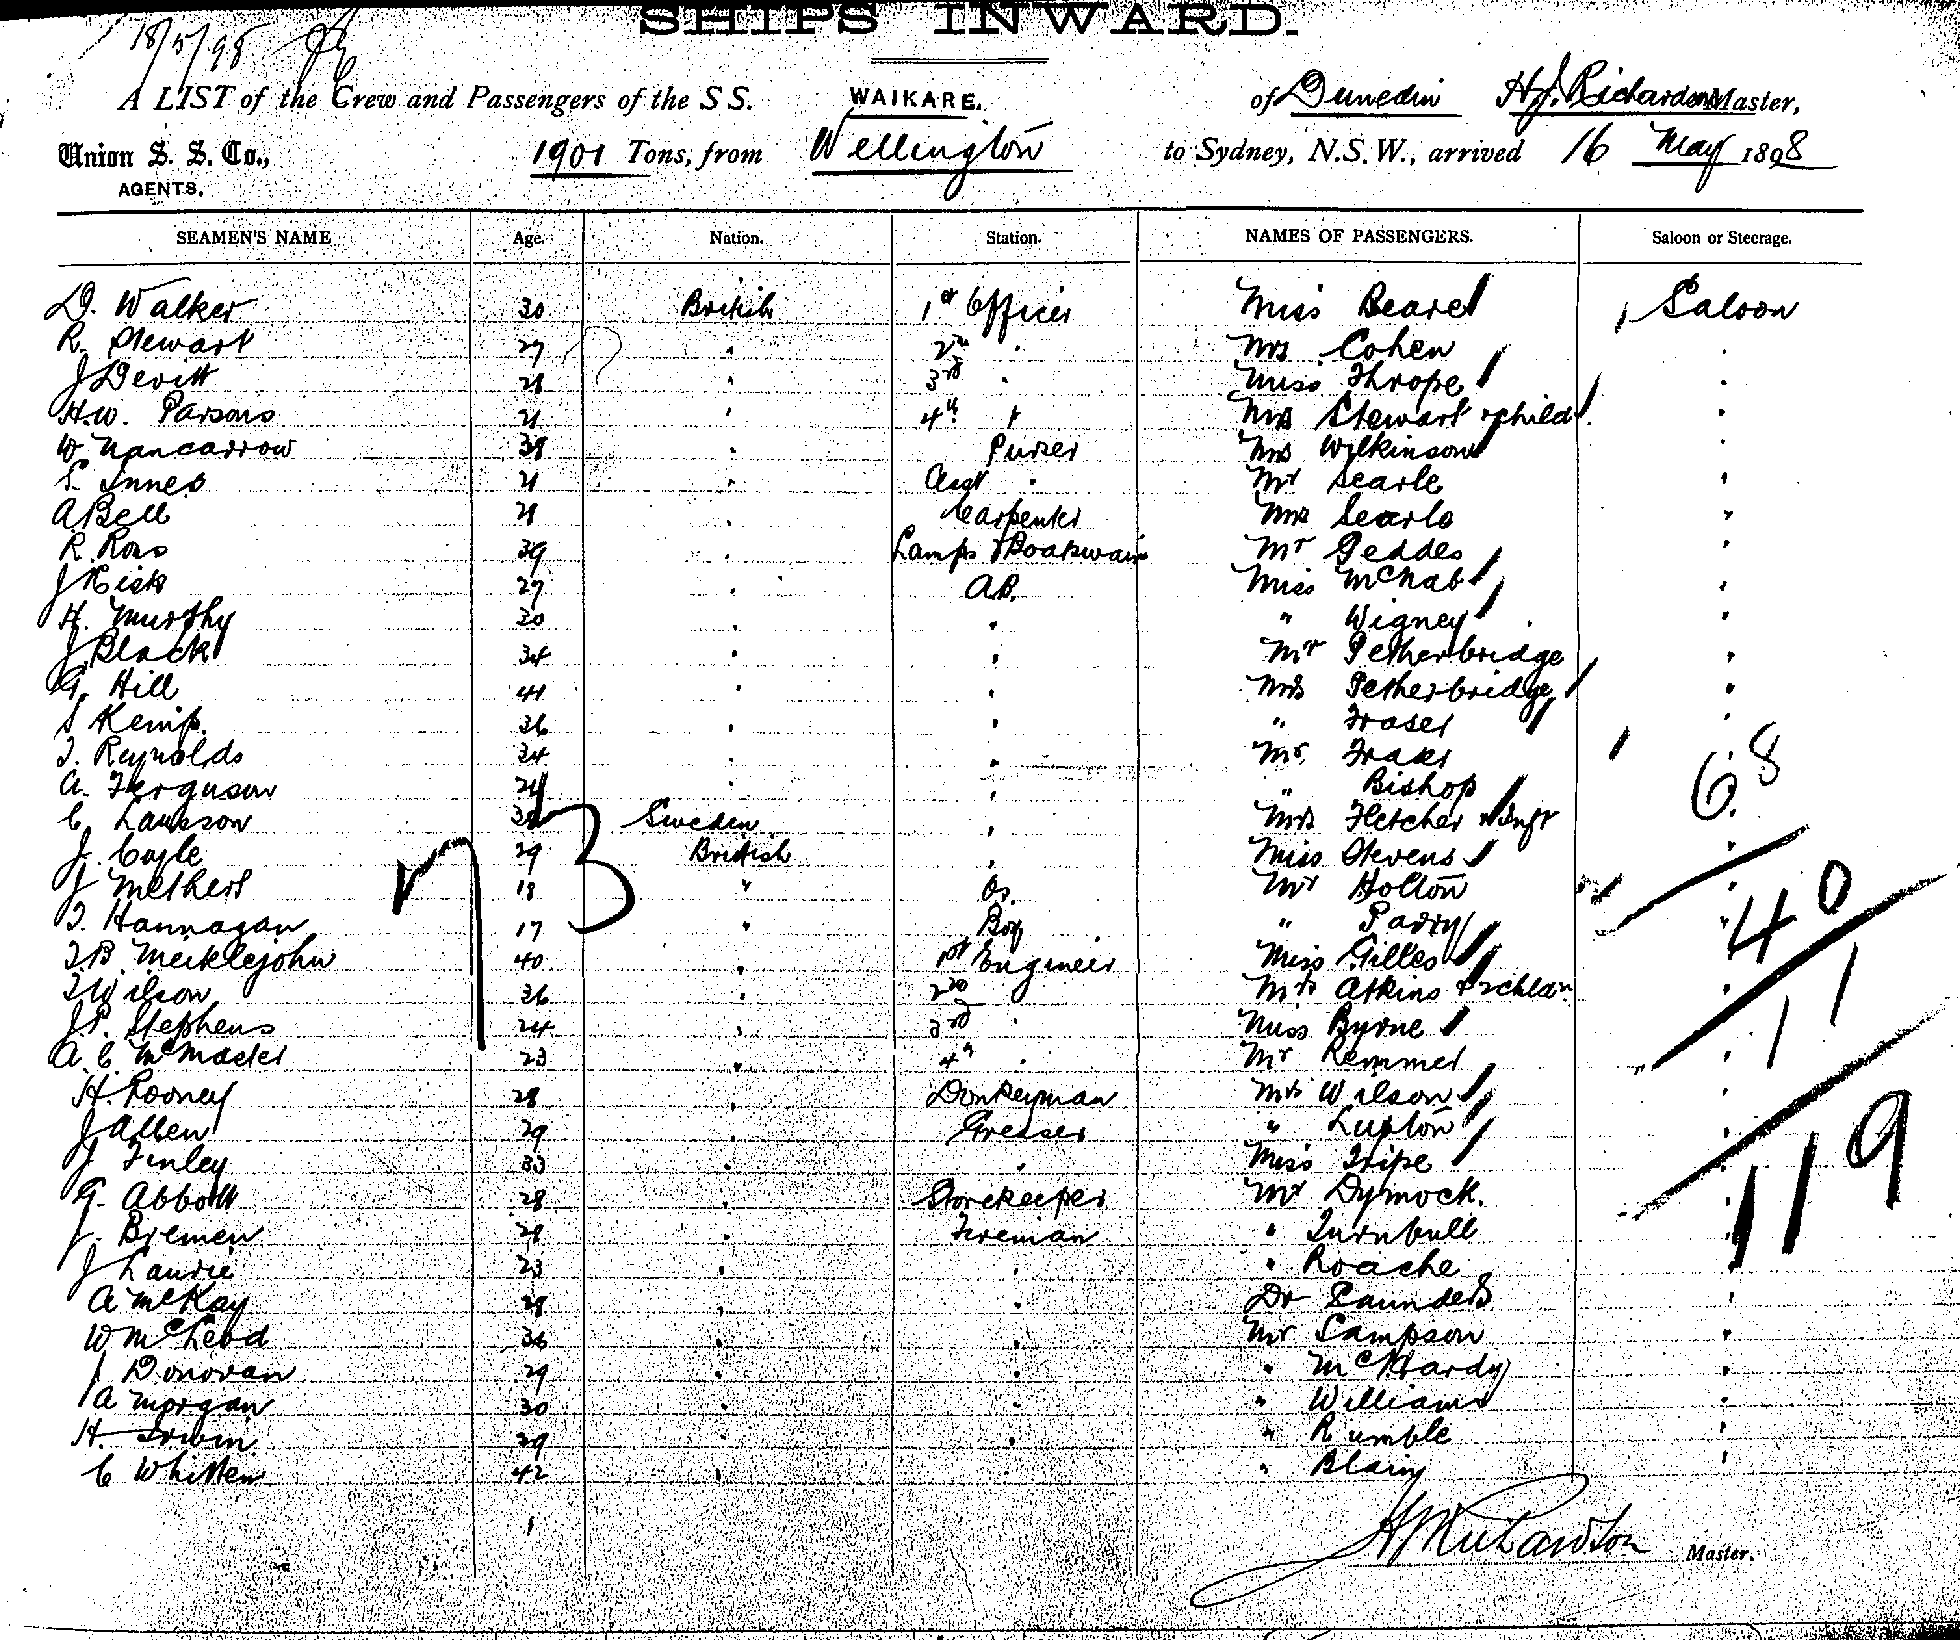 SHIPS INWARD.
18/5/98
A LIST of the Crew and Passengers of the S S. WAIKARE. of Dunedin H.J. Richardson Master,
Union S. S. Co., 1901 Tons, from Wellington to Sydney, N.S.W., arrived 16 May 1898
AGENTS.
SEAMEN'S NAME Age. Nation. Station. NAMES OF PASSENGERS. Saloon or Steerage.
D. Walker 30 British 1st Officer Miss Beare 1 Saloon
R. Stewart 27 " 2nd " Mrs Cohen "
J Devitt 28 " 3rd " Miss Thrope "
H.W. Parsons 21 " 4th " Mrs Stewart & child "
W. Nancarrow 38 " Purser Mrs Wilkinson "
Innes 21 " Asst " Mr Searle "
A Bell 28 " Carpenter Mrs Searle "
R. Ross 39 " Lamps & Boatswain Mr Geddes "
J Kisk 27 " AB. Miss McNab "
H. Murphy 30 " " " Wigney "
J. Black 34 " " Mr Petherbridge "
G. Hill 41 " " Mrs Petherbridge "
S Kemp. 36 " " " Fraser "
T. Reynolds 34 " " Mr. Fraser " 68
A. Ferguson 24 " " " Bishop "
C. Lawsson Sweden " Mrs Fletcher & Inft "
J. Coyle 29 British " Miss Stevens "
J Methers 18 " Os. Mr Holton " 40
T. Hannagan 17 " Boy " Parry "
73
T.B. Meiklejohn 40 " 1st Engineer Miss Gilles "
T Wilson 36 " 2nd Mrs Atkins & 2 chldn " 11
J.P. Stephens 24 " 3rd " Miss Byrne "
A. C. McMaster 23 " 4th " Mr Remmer "
H. Rooney 28 " Donkeyman Mrs Wilson "
J Allen 29 " Greaser " Lupton " 119
J Finley 33 " " Miss Tripe "
G. Abbott 28 " Storekeeper Mr Dymock. "
J. Bremen 28 " Fireman " Turnbull "
J Laurie 23 " " " Roache "
A McKay 28 " " Dr Saunders "
W McLeod 36 " " Mr Sampson "
J Donovan 29 " " " McHardy "
A Morgan 30 " " " Williams "
H. Irwin 29 " " " Rumble "
C Whitten 42 " " Blair "
1
HJ Richardson Master.